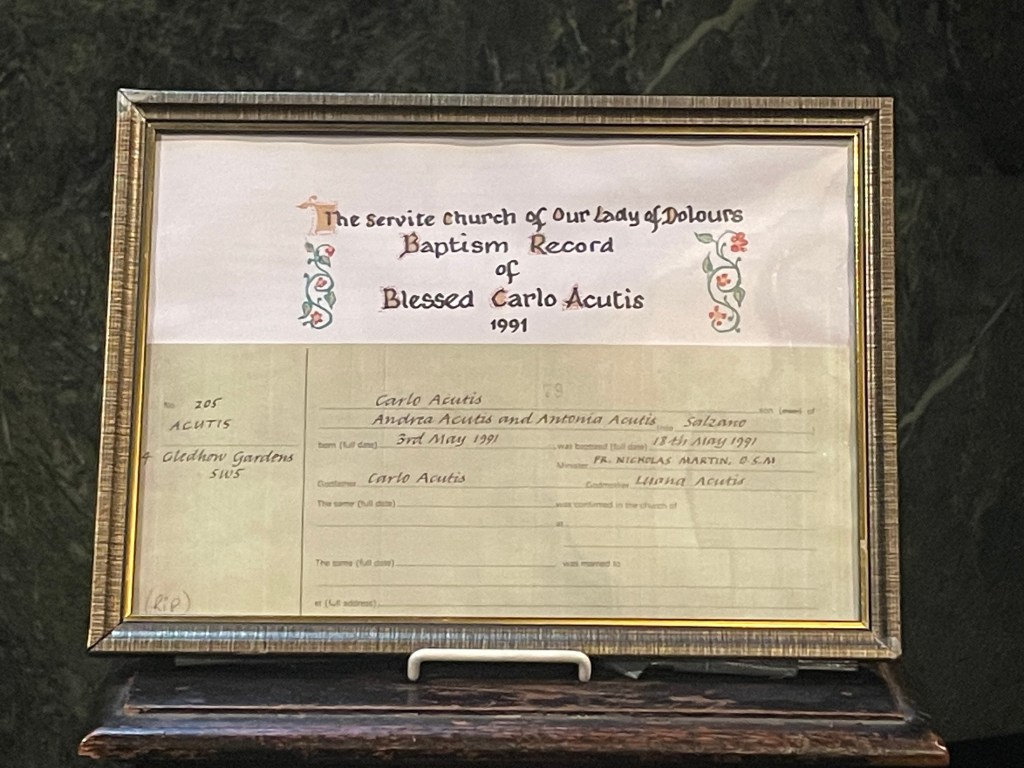 The Servite Church of Our Lady of Dolours
Baptism Record
of
Blessed Carlo Acutis
1991
79
No. 205
ACUTIS
4 Gledhow Gardens
SW5
(RIP)
Carlo Acutis
son (xxxxx) of
Andrea Acutis and Antonia Acutis née Salzano
born (full date) 3rd May 1991 was baptised (full date) 18th May 1991
Minister FR. NICHOLAS MARTIN, O.S.M
Godfather Carlo Acutis Godmother Luana Acutis
The same (full date) was confirmed in the church of
at
The same (full date) was married to
at (full address)